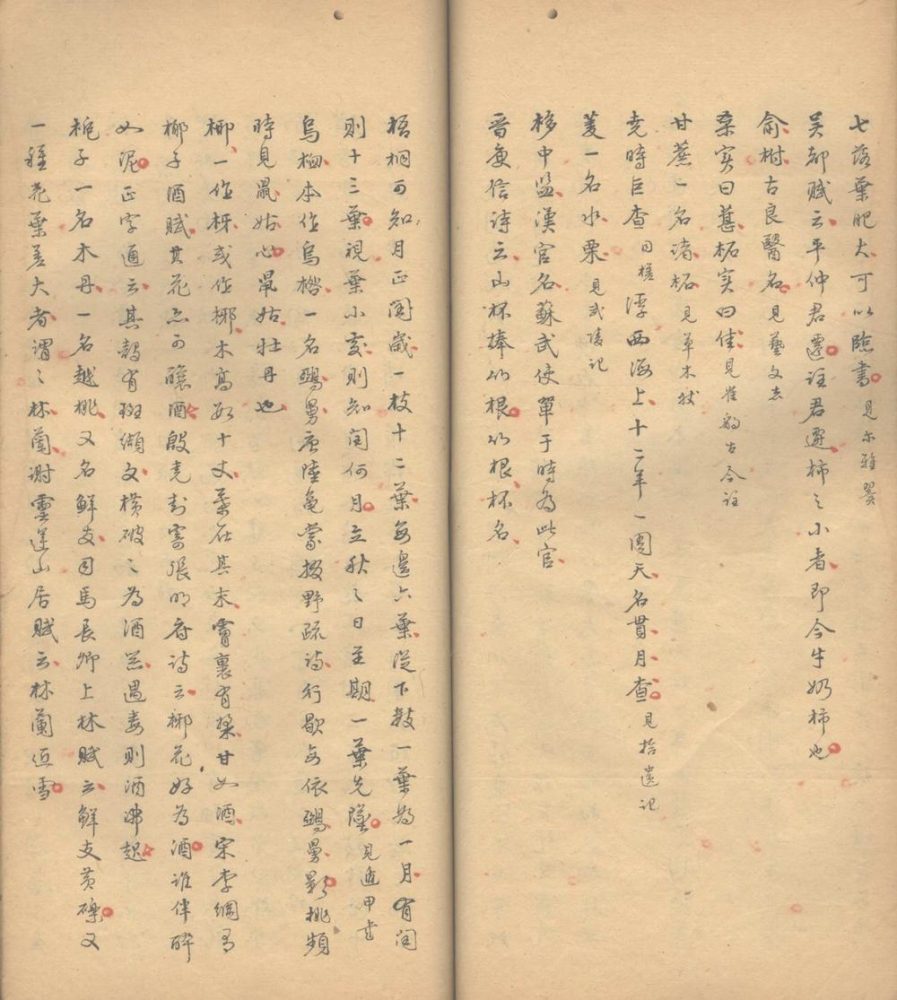 七落葉肥大可以臨書見尔雅翼
吳都賦云平仲君遷注君遷柿之小者即今牛奶柿也
俞樹古良醫名見藝文志
桑實曰葚柘實曰佳見崔豹古今注
甘蔗一名渚柘見草木狀
堯時巨查同槎浮西海上十二年一周天名貫月查見拾遺記
菱一名水栗見武陵記
栘中監漢官名蘇武使單于時為此官
晉庾信詩云山杯捧竹根竹根杯名
梧桐可知月正閏歲一枝十二葉每邊六葉從下數一葉為一月有閏
則十三葉視葉小處則知閏何月立秋之日至期一葉先墜見遁甲書
烏桕本作烏桕一名鵶舅唐陸龜蒙掇野蔬詩行歇每依鵶舅影挑頻
時見鼠姑心鼠姑牡丹也
椰一作枒或作梛木高數十丈葉在其末膚裏有漿甘如酒宋李綱有
椰子酒賦其花亦可釀酒殷堯封寄張明府詩云椰花好為酒誰伴醉
如泥正字通云其殼有斑纈文橫破之為酒器遇毒則酒沸起
梔子一名木丹一名越桃又名鮮支司馬長卿上林賦云鮮支黃礫又
一種花葉差大者謂之林蘭謝靈運山居賦云林蘭近雪